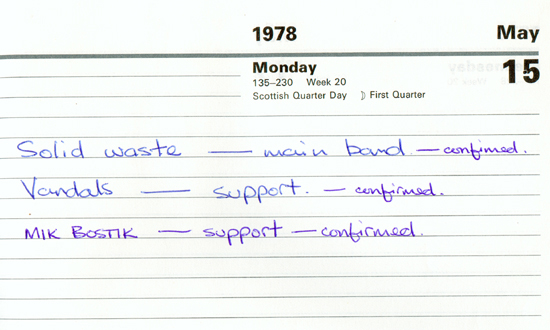 1978 May
Monday 15
135–230 Week 20
Scottish Quarter Day ☽ First Quarter
Solid waste — main band — confirmed.
Vandals — support. — confirmed.
MIK BOSTIK — support — confirmed.